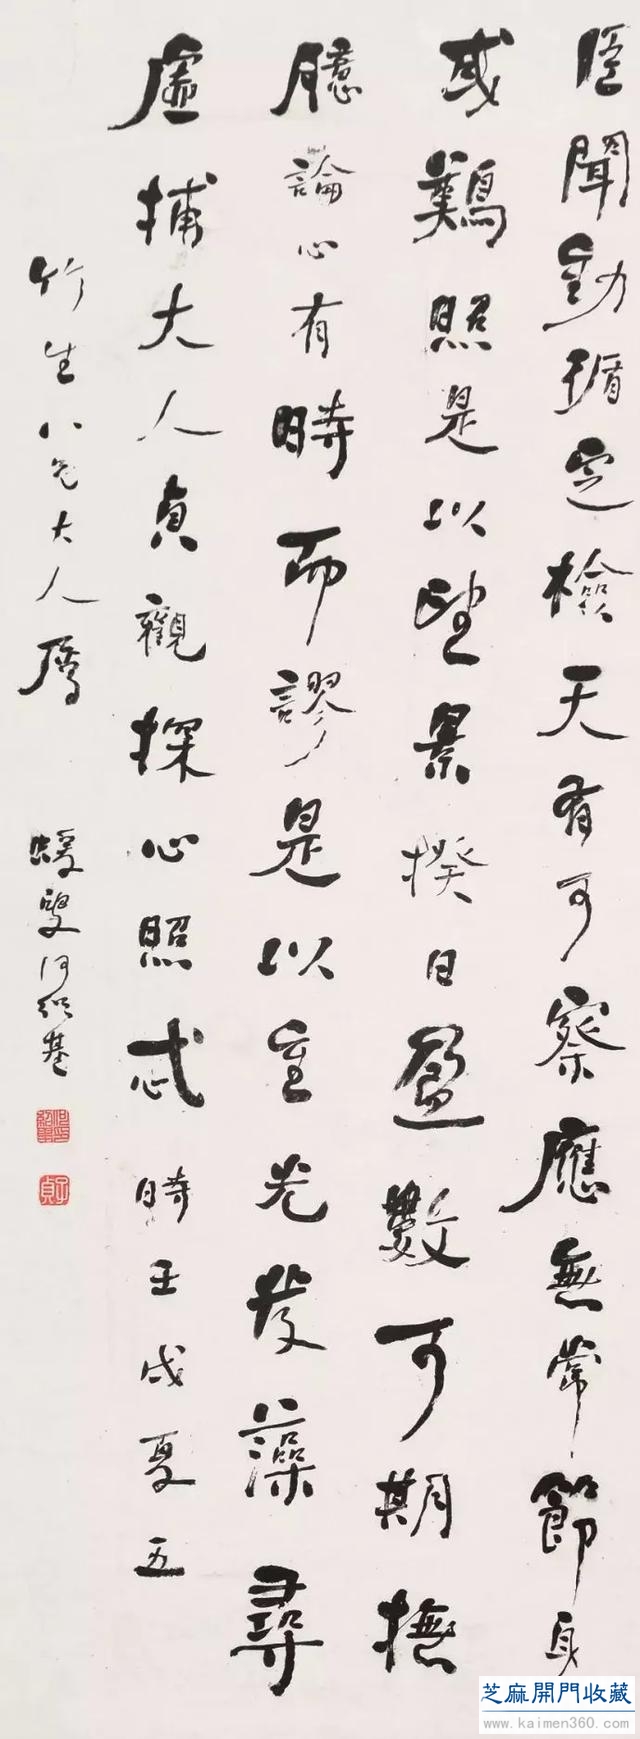 臣聞動循定檢天有可察應無常節身
或難照是以望景揆日盈數可期撫
臆論心有時而謬是以重光發藻尋
虛捕大人貞觀探心照忒時壬戌夏五
竹生八兄大人屬
蝯叟何紹基
芝麻開門收藏
www.kaimen360.com